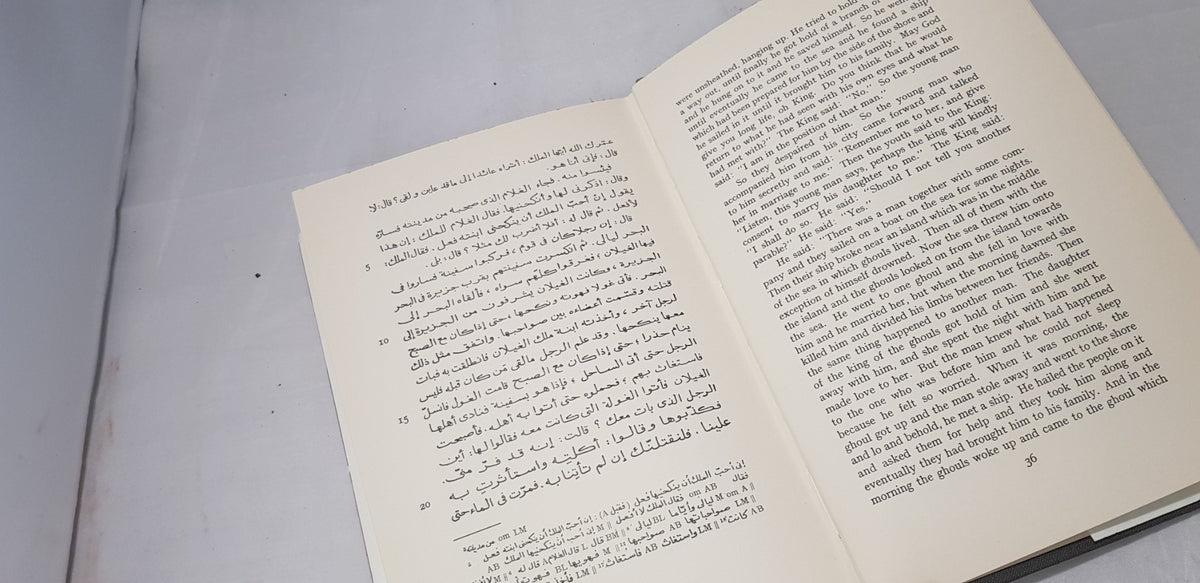 عمّرك الله أيها الملك؛ أتراه عائدا إلى ما قد عاين و لقى؟ قال: لا
قال: فإنى أنا هو.
فيئسوا منه. فجاء الغلام الذى صحبه من مدينته فسارّه
وقال: اذكرنى لها وأنكحنيها. فقال الغلام للملك: إن هذا
يقول إنْ أحبّ الملك أن ينكحنى ابنته فعل. فقال الملك: 5
لأفعل. ثم قال له: أفلا أضرب لك مثلا؟ قال: بلى
قال: إن رجلا كان فى قوم، فركبوا سفينة فساروا فى
البحر ليالى. ثم انكسرت سفينتهم بقرب جزيرة فى البحر
فيها الغيلان؛ فغرقوا كلّهم سواه، فألقاه البحر إلى
الجزيرة، وكانت الغيلان يشرفون من الجزيرة إلى 10
البحر. فأتى غولا فهوته ونكحها، حتى إذا كان مع الصبح
قتلته وقسّمت أعضاءه بين صواحبها. واتفق مثل ذلك
لرجل آخر، وأخذته ابنة ملك الغيلان فانطلقت به فبات
معها ينكحها. وقد علم الرجل ما لقى مَن كان قبله فليس
ينام حذرا؛ حتى إذا كان مع الصبح نامت الغول فانسلّ 15
الرجل حتى أتى الساحل، فإذا هو بسفينة فنادى أهلها
فاستغاث بهم، فحملوه حتى أتوا به أهله. فأصبحت
الغيلان فأتوا الغولة التى كانت معه فقالوا لها: أين
الرجل الذى بات معك؟ قالت: إنه قد فرّ منّى.
فكذّبوها وقالوا: أكلتِه واستأثرتِ به 20
علينا. فلنقتلنّك إن لم تأتينا به. فمرّت فى الماء حتى
were unsheathed, hanging up. He tried to hold
a way out, until finally he got hold of a branch of
and he hung on to it and he saved himself. So he went
until eventually he came to the sea and he found a ship
which had been prepared for him by the side of the shore and
he sailed in it until it brought him to his family. May God
give you long life, oh King. Do you think that he would
return to what he had seen with his own eyes and what he
had met with?" The King said: "No." So the young man
said: "I am in the position of that man."
So they despaired of him. So the young man who
accompanied him from his city came forward and talked
to him secretly and said: "Remember me to her, and give
her in marriage to me." Then the youth said to the King:
"Listen, this young man says, perhaps the king will kindly
consent to marry his daughter to me." The King said:
"I shall do so." He said: "Should I not tell you another
parable?" He said: "Yes."
He said: "There was a man together with some com-
pany and they sailed on a boat on the sea for some nights.
Then their ship broke near an island which was in the middle
of the sea in which ghouls lived. Then all of them with the
exception of himself drowned. Now the sea threw him onto
the island and the ghouls looked on from the island towards
the sea. He went to one ghoul and she fell in love with
him and he married her, but when the morning dawned she
killed him and divided his limbs between her friends. Then
the same thing happened to another man. The daughter
of the king of the ghouls got hold of him and she went
away with him, and she spent the night with him and he
made love to her. But the man knew what had happened
to the one who was before him and he could not sleep
because he felt so worried. When it was morning, the
ghoul got up and the man stole away and went to the shore
and lo and behold, he met a ship. He hailed the people on it
and asked them for help and they took him along and
eventually they had brought him to his family. And in the
morning the ghouls woke up and came to the ghoul which
36